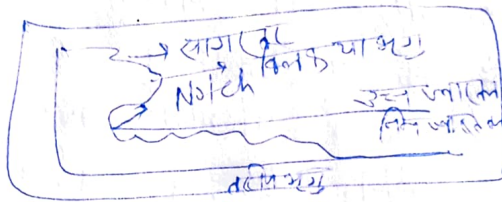 सागर तट
Notch क्लिफ या भृगु
उच्च ज्वार तल
निम्न ज्वार तल
तटीय भृगु